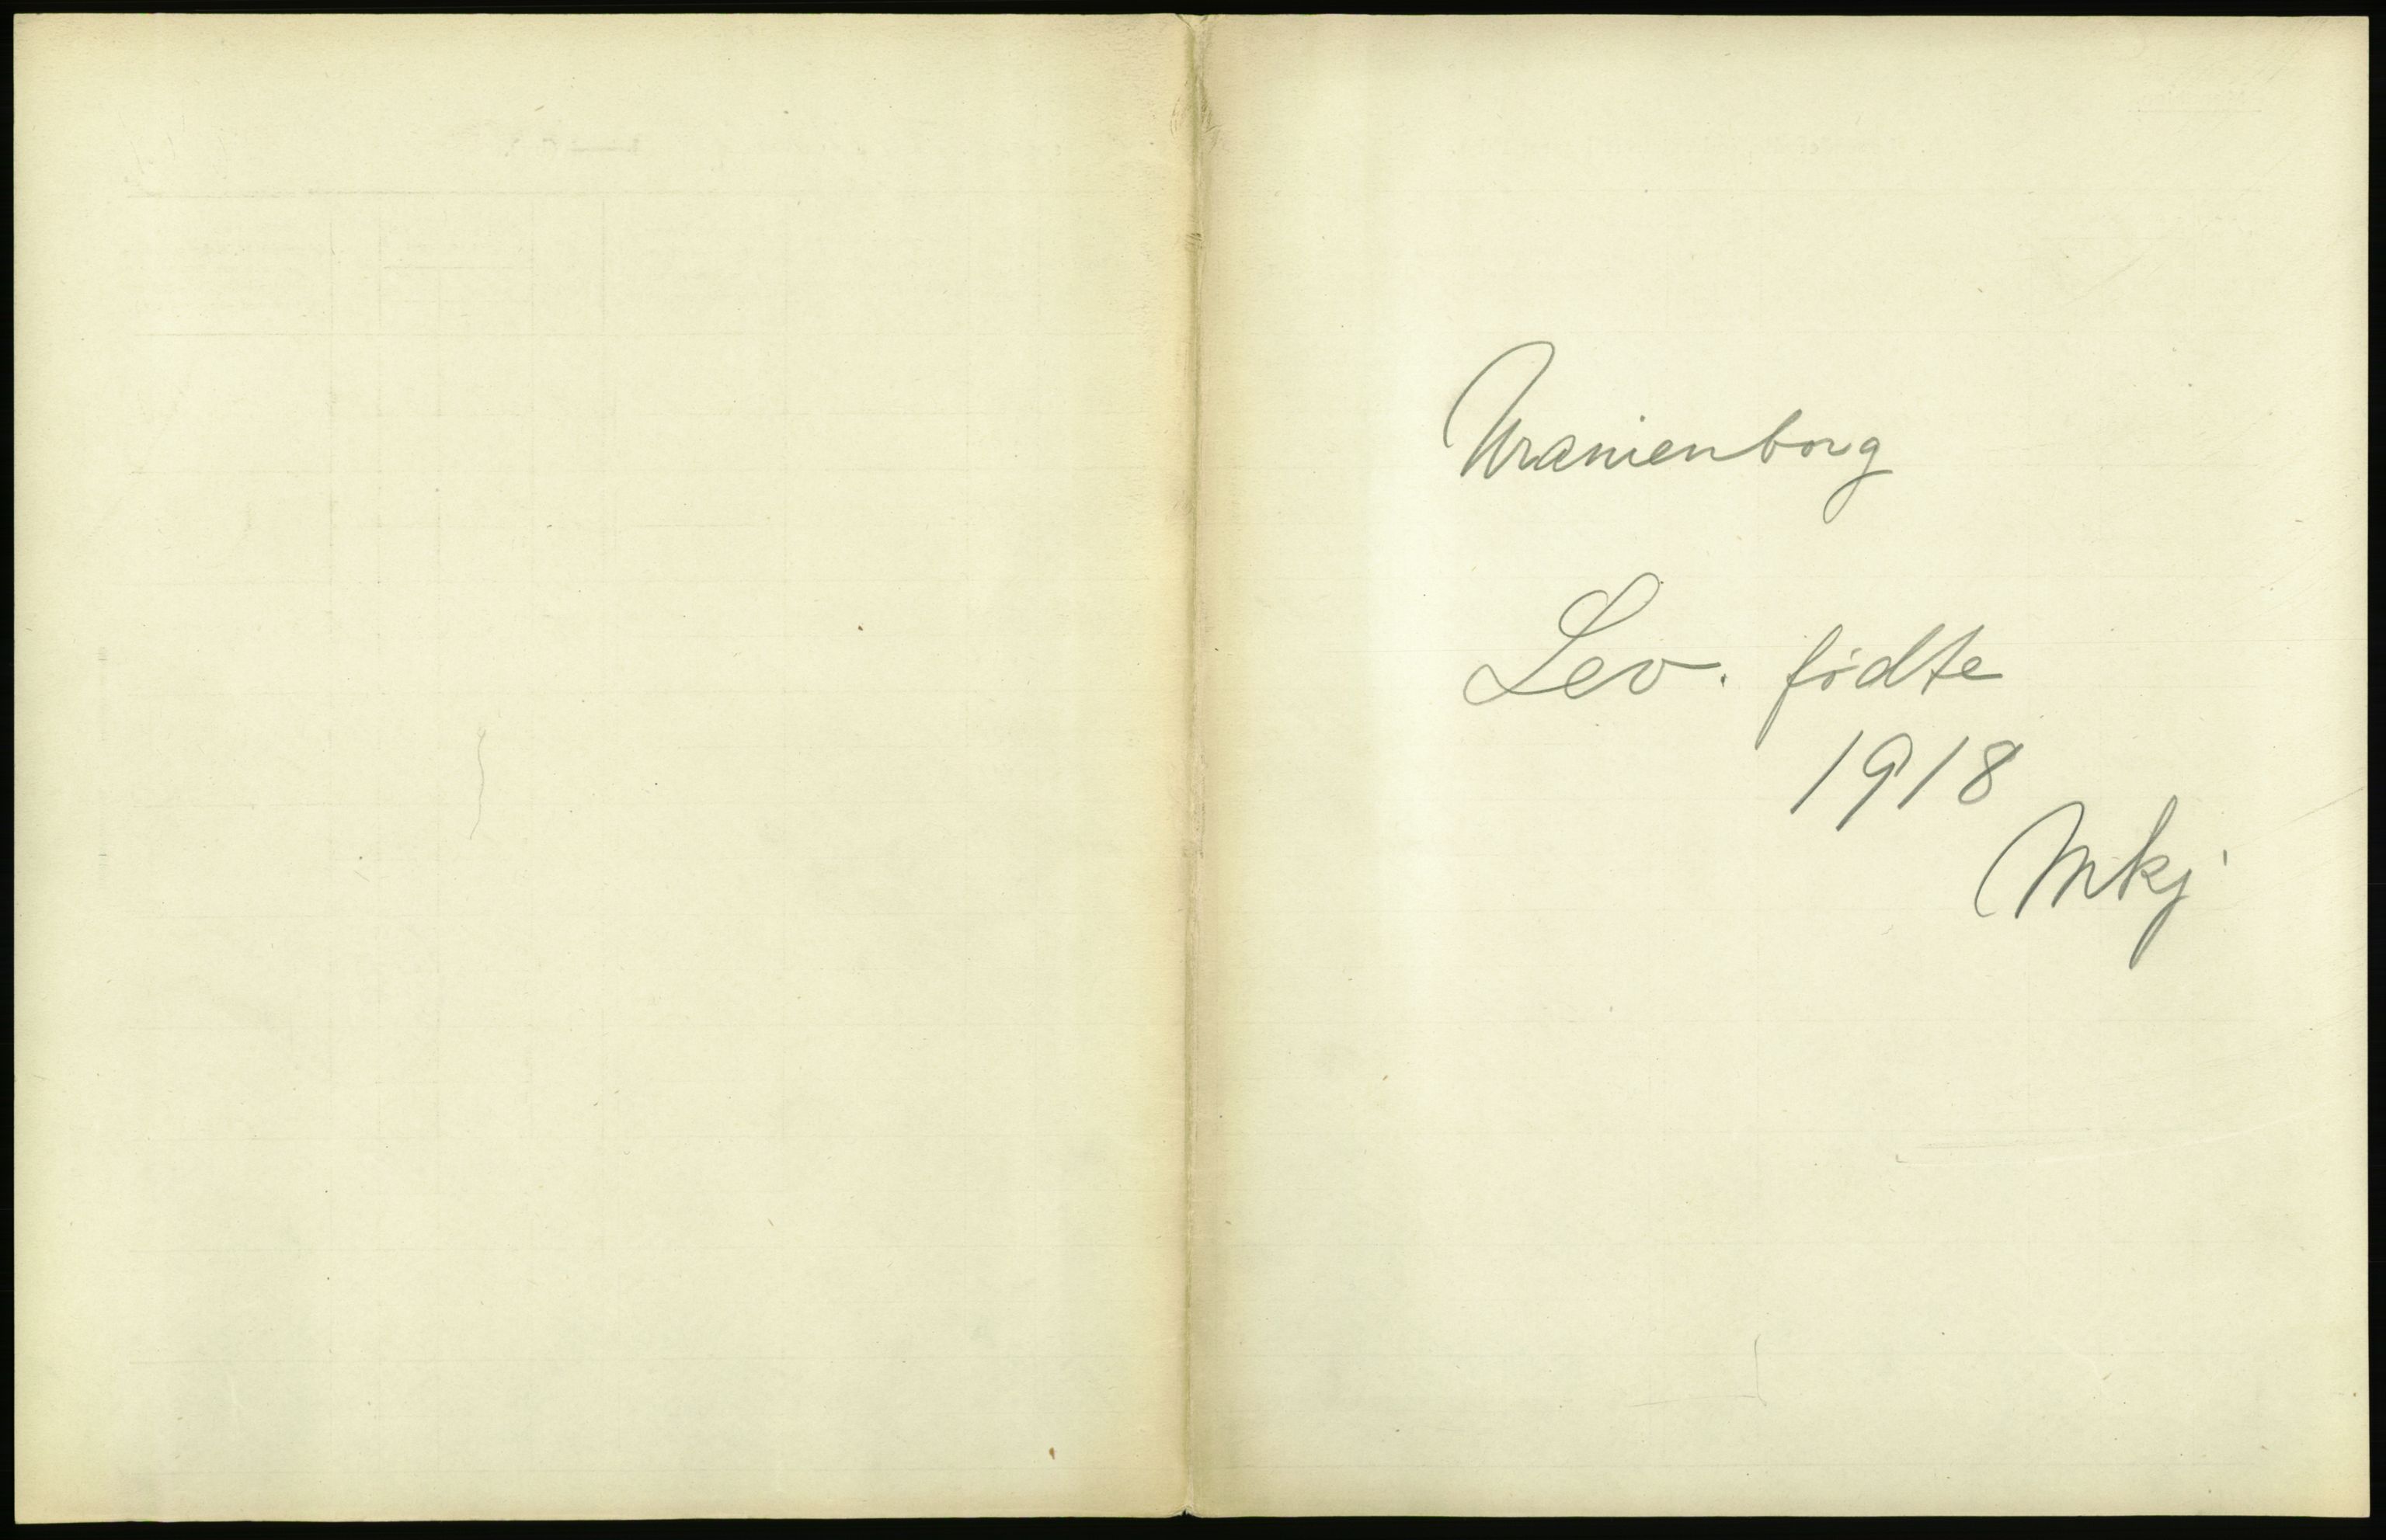 Uranienborg
Lev. fødte
1918
Mkj